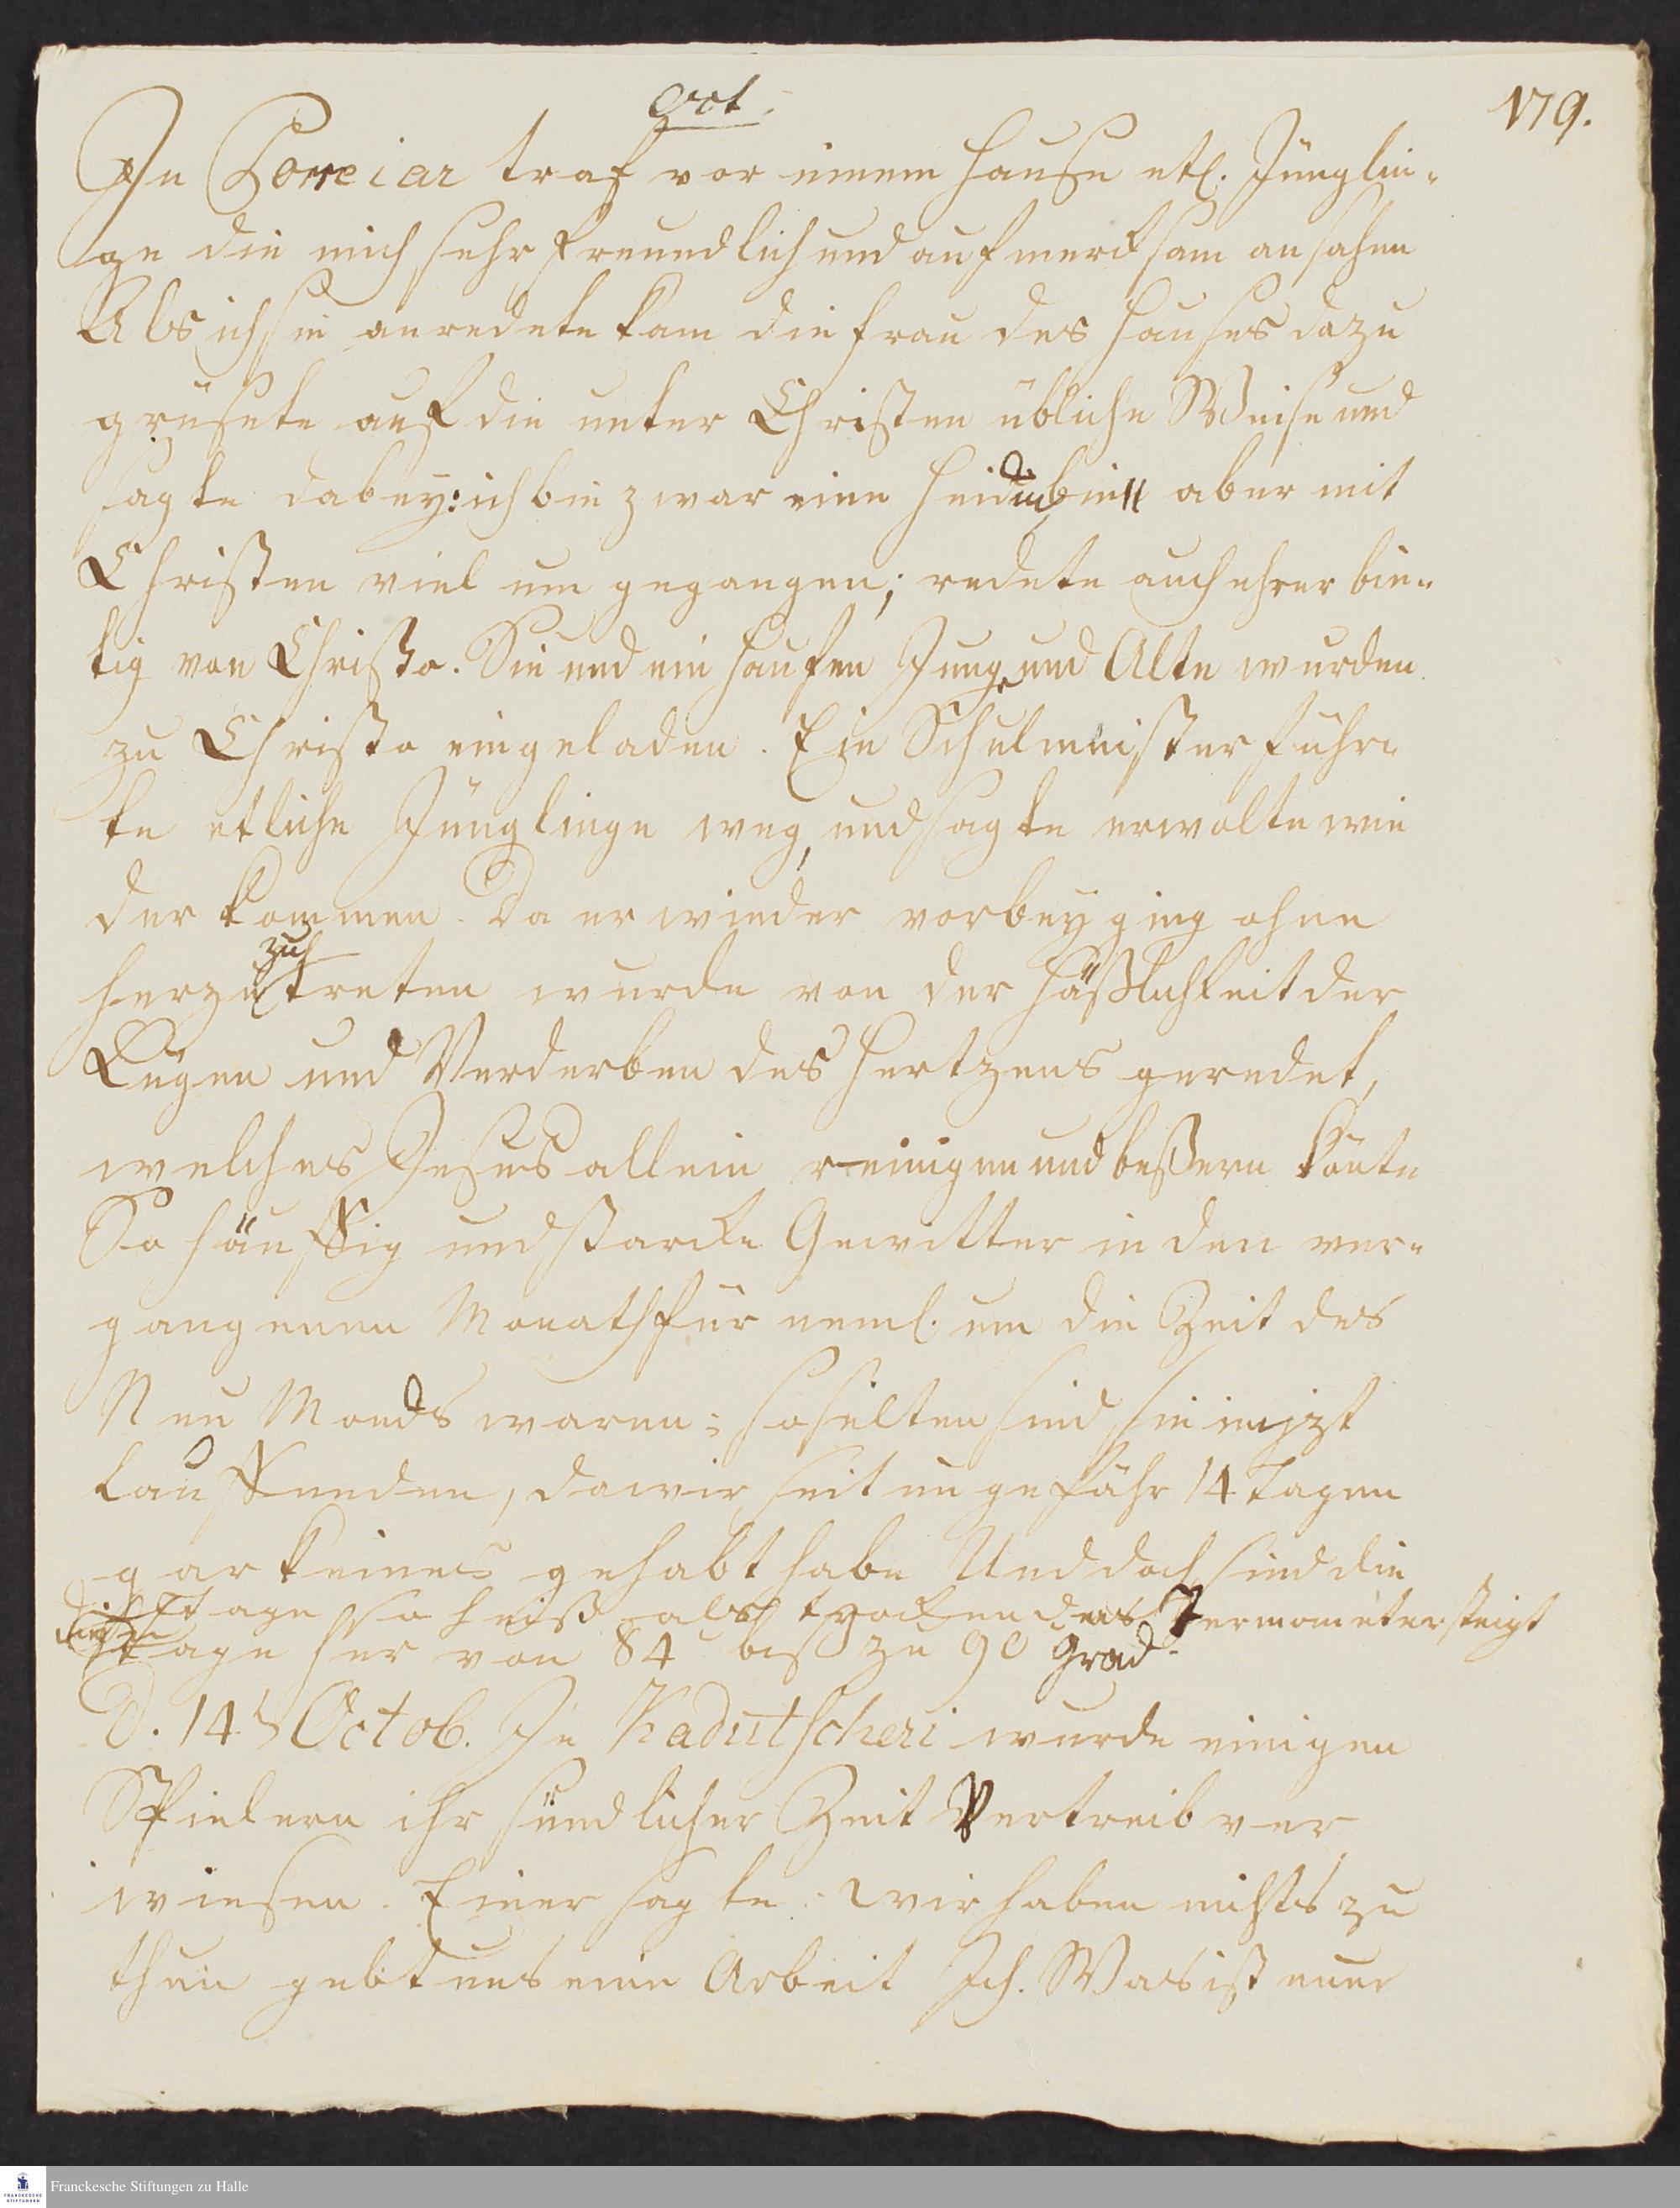 Oct.
179.
In Porreiar traf vor einem Hause etl. Jünglin-
ge die mich sehr freundlich und aufmercksam ansahen
Als ich sie anredete kam die Frau des Hauses dazu
grüsete auf die unter Christen übliche Weise und
sagte dabey: ich bin zwar eine Heidin bin aber mit
Christen viel um gegangen; redete auch ehrerbie-
tig von Christo. Sie und ein Haufen Junge und Alte wurden
zu Christo eingeladen. Ein Schulmeister führ-
te etliche Jünglinge weg, und sagte er wolte wie
der kommen. Da er wieder vorbey ging ohne
herzu zu treten wurde von der Häßlichkeit der
Lügen und Verderben des Hertzens geredet,
welches Jesus allein reinigen und beßern könte
So häuffig und starcke Gewitter in den ver-
gangenen Monath für neml. um die Zeit des
Neu Monds waren: so selten sind sie in jezt
lauffenden, da wir seit ungefähr 14 Tagen
gar keines gehabt habe Und doch sind die
Tage so heiß als trocken das Termometer steigt
diese Tage her von 84 biß zu 90 Grad.
D. 14 t. Octob. In Kadutscheri wurde einigen
Spielern ihr sündlicher Zeit Vertreib ver
wiesen. Einer sagte: wir haben nichts zu
thun gebt uns eine Arbeit Ich. Was ist euer
Franckesche Stiftungen zu Halle
FRANCKESCHE
STIFTUNGEN